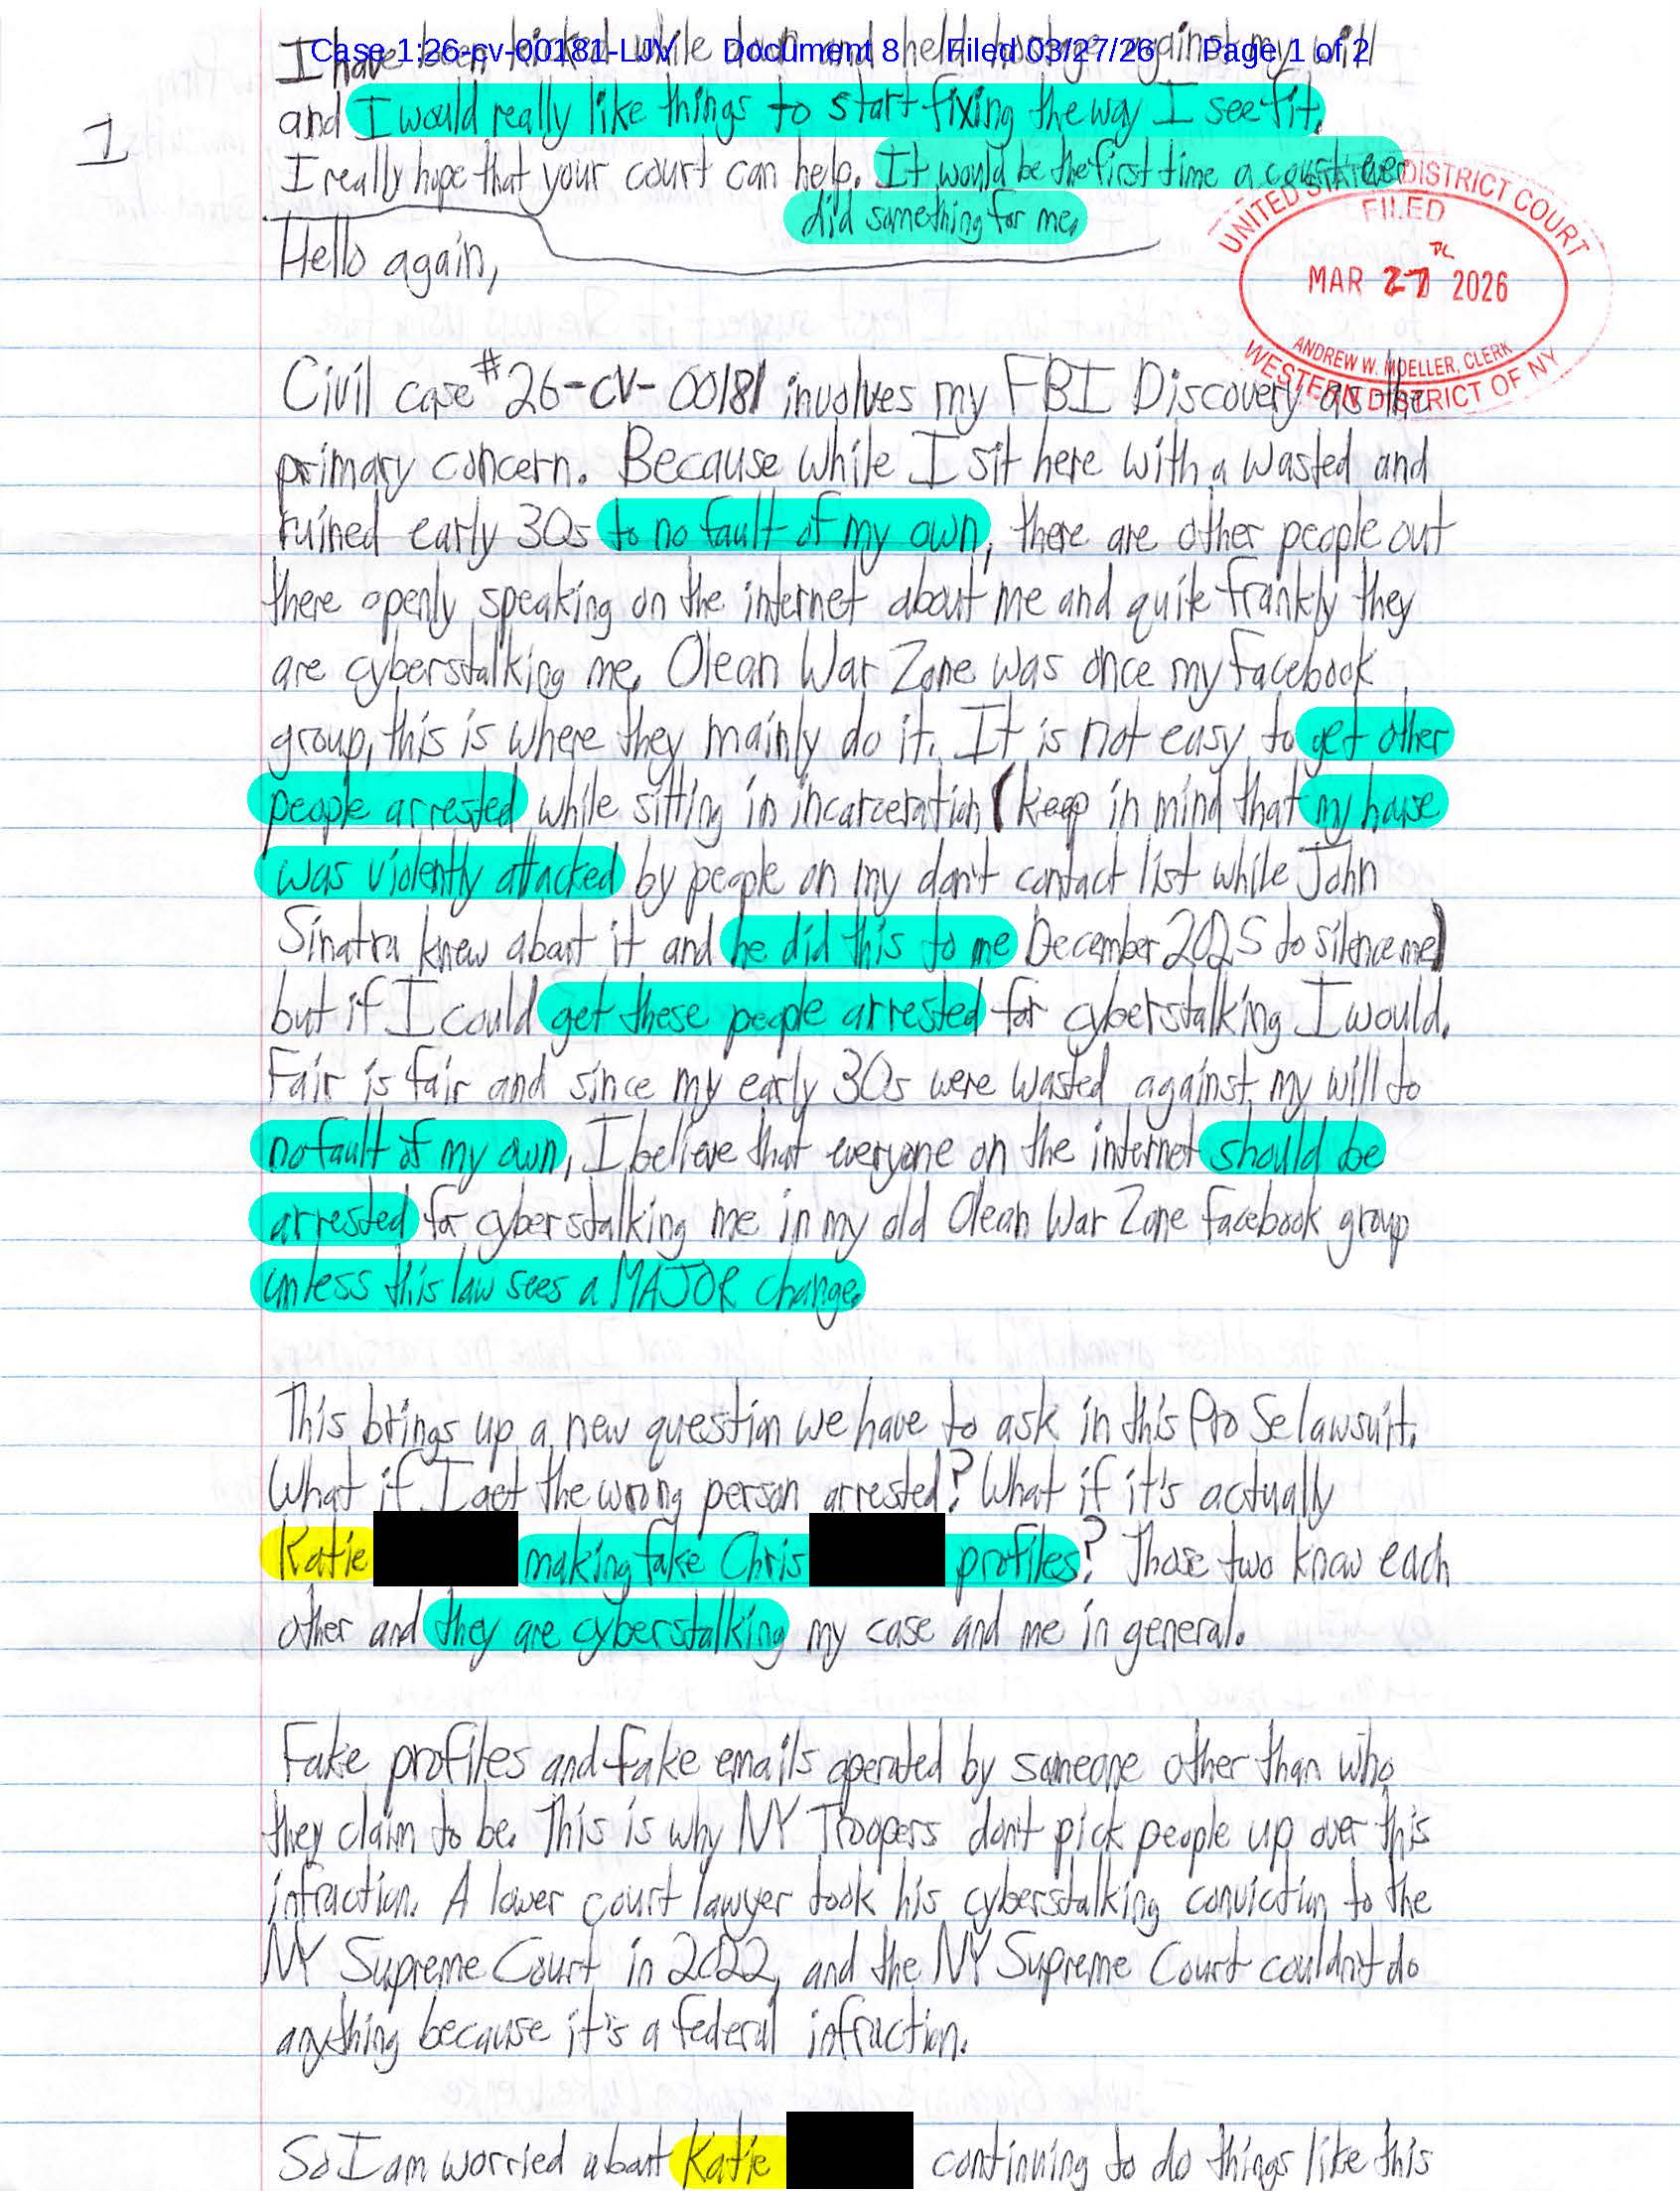 Case 1:26-cv-00181-LJV Document 8 Filed 03/27/26 Page 1 of 2
I have been kicked while down and held hostage against my will
and I would really like things to start fixing the way I see fit.
1
I really hope that your court can help. It would be the first time a court ever
did something for me.
UNITED STATES DISTRICT COURT
FILED
MAR 27 2026
ANDREW W. MOELLER, CLERK
WESTERN DISTRICT OF NY
Hello again,
Civil case # 26-cv-00181 involves my FBI Discovery as the
primary concern. Because while I sit here with a wasted and
ruined early 30s to no fault of my own, there are other people out
there openly speaking on the internet about me and quite frankly they
are cyberstalking me. Olean War Zone was once my Facebook
group, this is where they mainly do it. It is not easy to get other
people arrested while sitting in incarceration (keep in mind that my house
was violently attacked by people on my don't contact list while John
Sinatra knew about it and he did this to me December 2025 to silence me)
but if I could get these people arrested for cyberstalking I would.
Fair is fair and since my early 30s were wasted against my will to
no fault of my own, I believe that everyone on the internet should be
arrested for cyberstalking me in my old Olean War Zone Facebook group
unless this law sees a MAJOR change.
This brings up a new question we have to ask in this Pro Se lawsuit.
What if I get the wrong person arrested? What if it's actually
Katie making fake Chris profiles? Those two know each
other and they are cyberstalking my case and me in general.
Fake profiles and fake emails operated by someone other than who
they claim to be. This is why NY Troopers don't pick people up over this
infraction. A lower court lawyer took his cyberstalking conviction to the
NY Supreme Court in 2022, and the NY Supreme Court couldn't do
anything because it's a federal infraction.
So I am worried about Katie continuing to do things like this